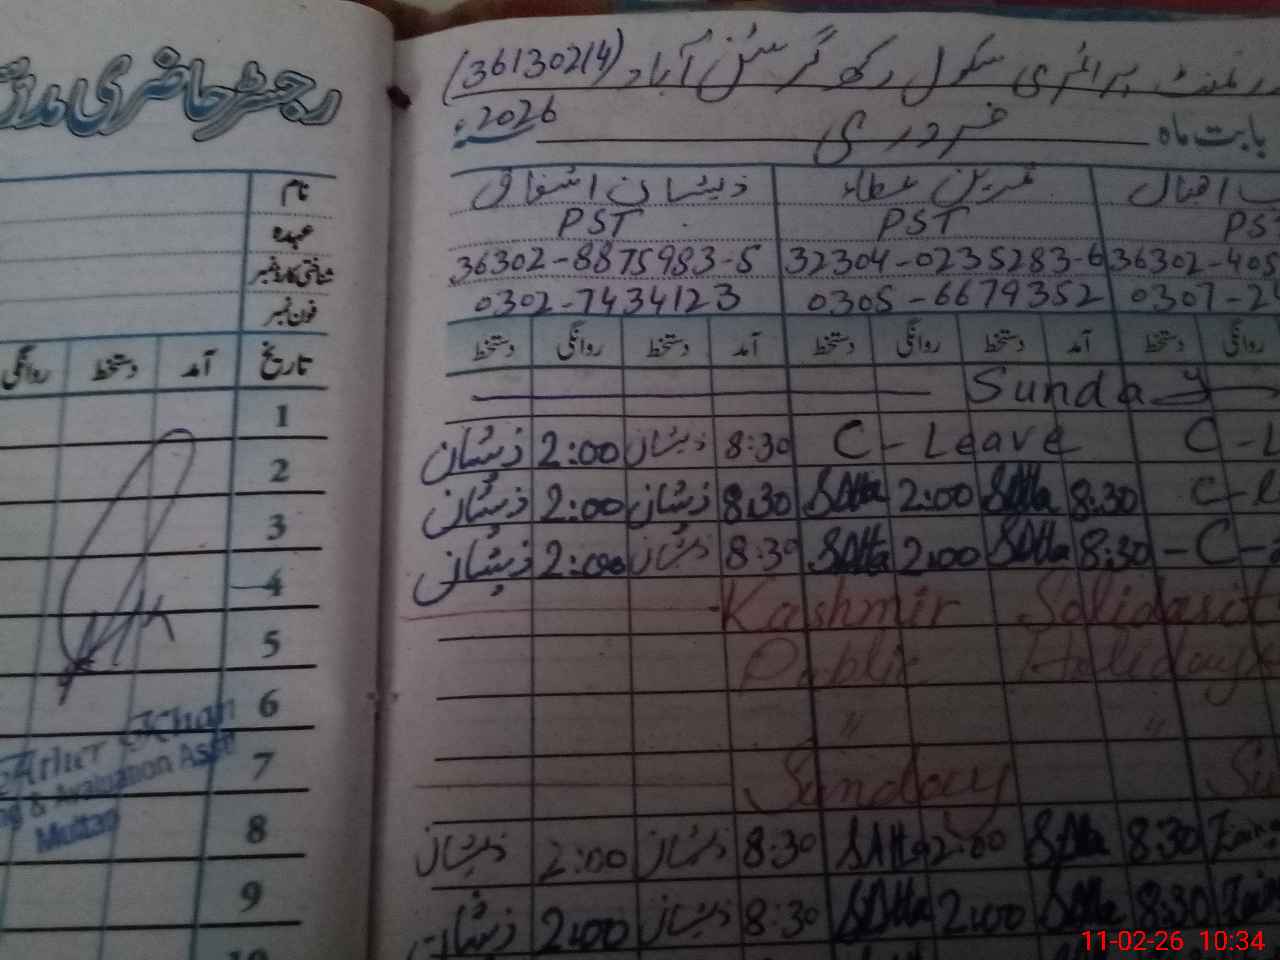 رجسٹر حاضری
نام
عہدہ
شناختی کارڈ نمبر
فون نمبر
تاریخ آمد دستخط روانگی
1
2
3
4
5
6
7
8
9
10
Khan
& Evaluation Asstt
Multan
پرائمری سکول (36130214)
بابت ماہ فروری 2026
اقبال عطاء ذیشان اشفاق
PST PST PST
36302-8875983-5 32304-0235283-6 36302-405
0302-7434123 0305-6679352 0307-2
روانگی دستخط آمد دستخط روانگی دستخط آمد دستخط روانگی دستخط
Sunday
ذیشان 2:00 ذیشان 8:30 C-Leave C-L
ذیشان 2:00 ذیشان 8:30 2:00 8:30 C-L
ذیشان 2:00 ذیشان 8:30 2:00 8:30 -C-
Kashmir Solidarit
Public Holidays
" "
Sunday Su
ذیشان 2:00 ذیشان 8:30 2:00 8:30
ذیشان 2:00 ذیشان 8:30 2:00 8:30
11-02-26 10:34